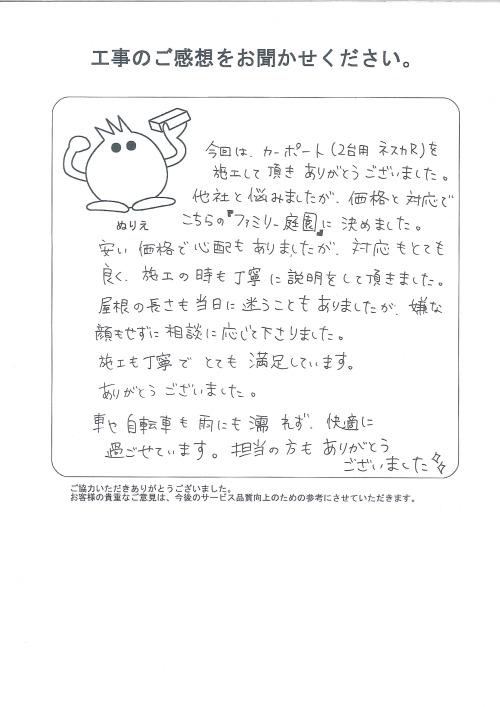 工事のご感想をお聞かせください。
今回は、カーポート(2台用 ネスカR)を
施工して頂き ありがとうございました。
他社と悩みましたが、価格と対応で
こちらの『ファミリー庭園』に 決めました。
ぬりえ
安い価格で心配もありましたが、対応もとても
良く、施工の時も丁寧に説明をして頂きました。
屋根の長さも当日に迷うこともありましたが、嫌な
顔もせずに相談に応じて下さりました。
施工も丁寧で とても 満足しています。
ありがとう ございました。
車や自転車も雨にも濡れず、快適に
過ごせています。担当の方も ありがとう
ございました
ご協力いただきありがとうございました。
お客様の貴重なご意見は、今後のサービス品質向上のための参考にさせていただきます。